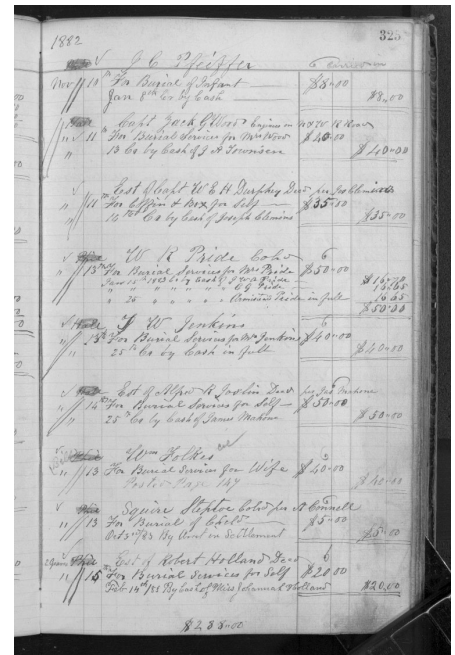 1882
323
J. C. Pfeiffer
Nov 10th For Burial of Infant $8-00
Jan 8th Cr by Cash $8-00
Capt Jack G Wood Engineer N & W R Road
" 11 For Burial Services for Mrs Wood $40-00
" 13 Cr by Cash of J A Townsen $40-00
Est of Capt W E H Durphey Decd per Jos Clemins
" 11th For Coffin & Box for Self $35-00
" 14th Cr by Cash of Joseph Clemins $35-00
W R Pride Cold
" 13th For Burial Services for Mrs Pride $50-00
Jany 15th 1883 Cr by Cash of J W R Pride $16-70
" " " " " O G Pride 16.65
" 26 " " " " Armistead Pride in full 16.65
$50.00
W Jenkins
" 13th For Burial Services for Mrs Jenkins $40-00
25th Cr by Cash in full $40-00
Est of Alfred R Joslin Decd per Jas Mahone
" 14th For Burial Services for Self $50-00
25th Cr by Cash of James Mahone $50-00
Wm Folkes
" 13 For Burial Services for Wife $40-00
Posted Page 147 $40-00
Squire Steptoe Cold per A Connell
" 13 For Burial of Child $5-00
Oct 31st /83 By Amt in Settlement $5-00
Est of Robert Holland Decd
" 15th For Burial Services for Self $20-00
Feb 14th 188 By Cash of Miss Johannah Holland $20.00
$288-00